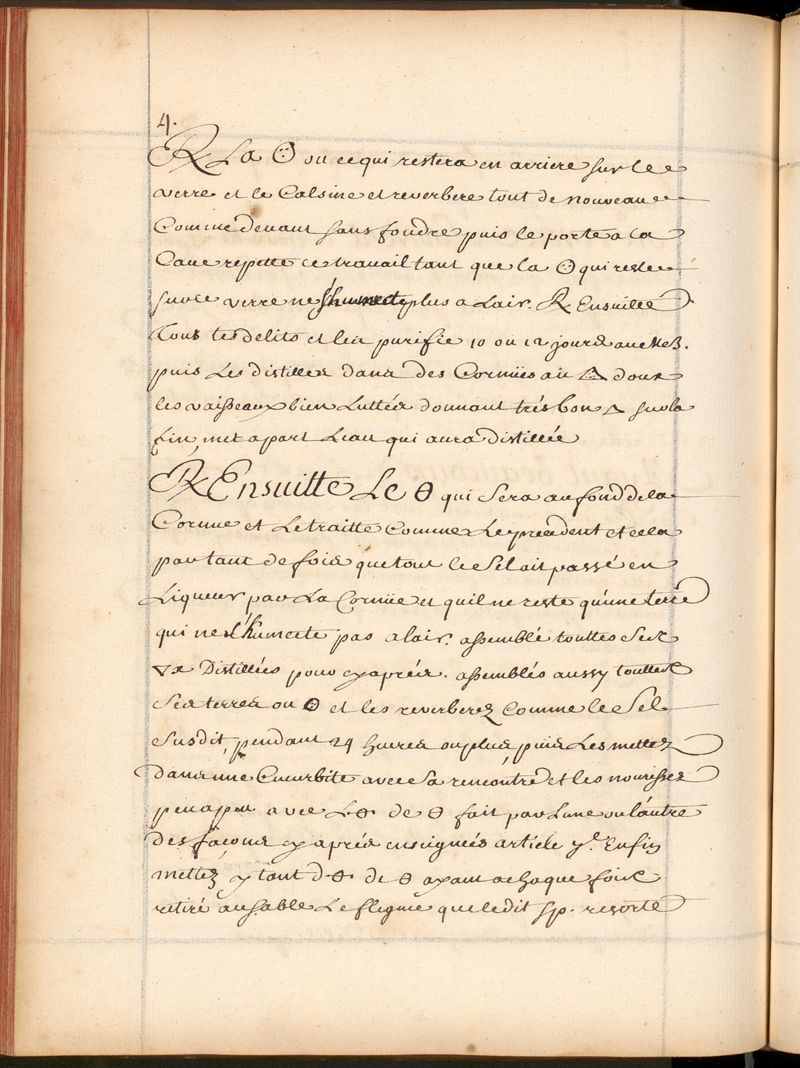 4.
℞ La 🜔 ou ce qui restera en arriere sur le
verre et le Calsine et reverbere tout de nouveau
Comme devant sans fondre puis le porte a la
Cave repette ce travail tant que la ☉ qui reste
sur ce verre ne s'humecte plus a Lair. ℞. Ensuitte
Tous tes delits et les purifie 10 ou 12 jours au
puis Les distiller dans des Cornües au 🜂 doux
les vaisseaux bien Luttés donnant trés bon 🜂 sur la
fin, met apart Leau qui aura distillée
℞ Ensuitte Le θ qui sera au fond de la
Cornue et Le traitte comme Le precedent et cela
par tant de fois que tout le Sel ait passé en
Liqueur par La Cornüe et quil ne reste qu'une terre
qui ne s'humecte pas a lair. assemblé touttes ses
🜄 Distillées pour cy aprés. assemblés aussy touttes
Ses terres ou ☉ et les reverberez Comme le Sel
Susdit, pendant 24 heures ou plus, puis Les mettez
dans une Cucurbite avec sa rencontre et les nourissez
peu a peu avec L. de θ fait par Lune ou lautre
des façons cy aprés enseignées article y.e Enfin
mettez y tant d. de θ ayant a chaque fois
retiré au sable Le flegme que ledit sp. resorte